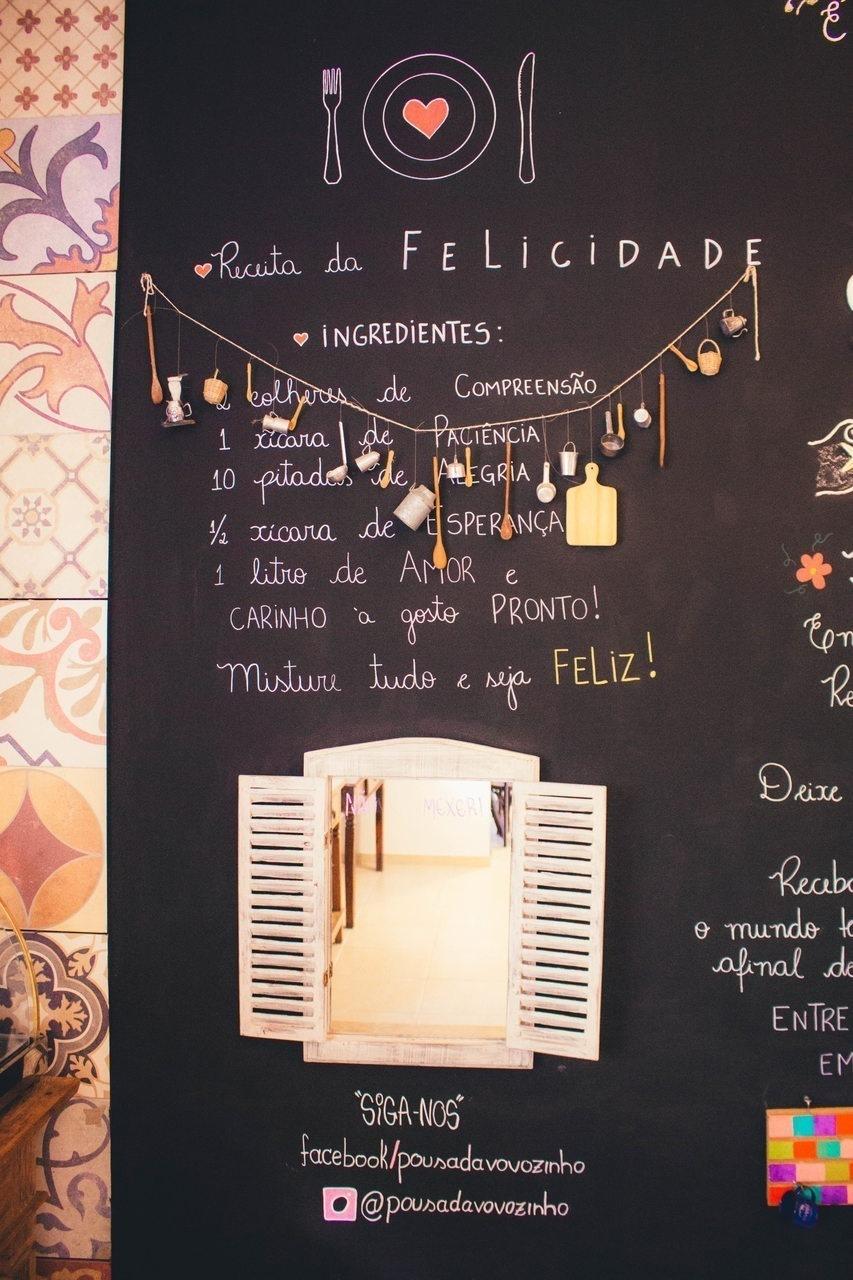 Receita da FELICIDADE
INGREDIENTES:
2 colheres de COMPREENSÃO
1 xícara de PACIÊNCIA
10 pitadas de ALEGRIA
1/2 xícara de ESPERANÇA
1 litro de AMOR e
CARINHO à gosto PRONTO!
Misture tudo e seja FELIZ!
MEXER!
"SIGA-NOS"
facebook/pousadavovozinho
@pousadavovozinho
E
En
Re
Deixe
Receba
o mundo
afinal de
ENTRE
EM